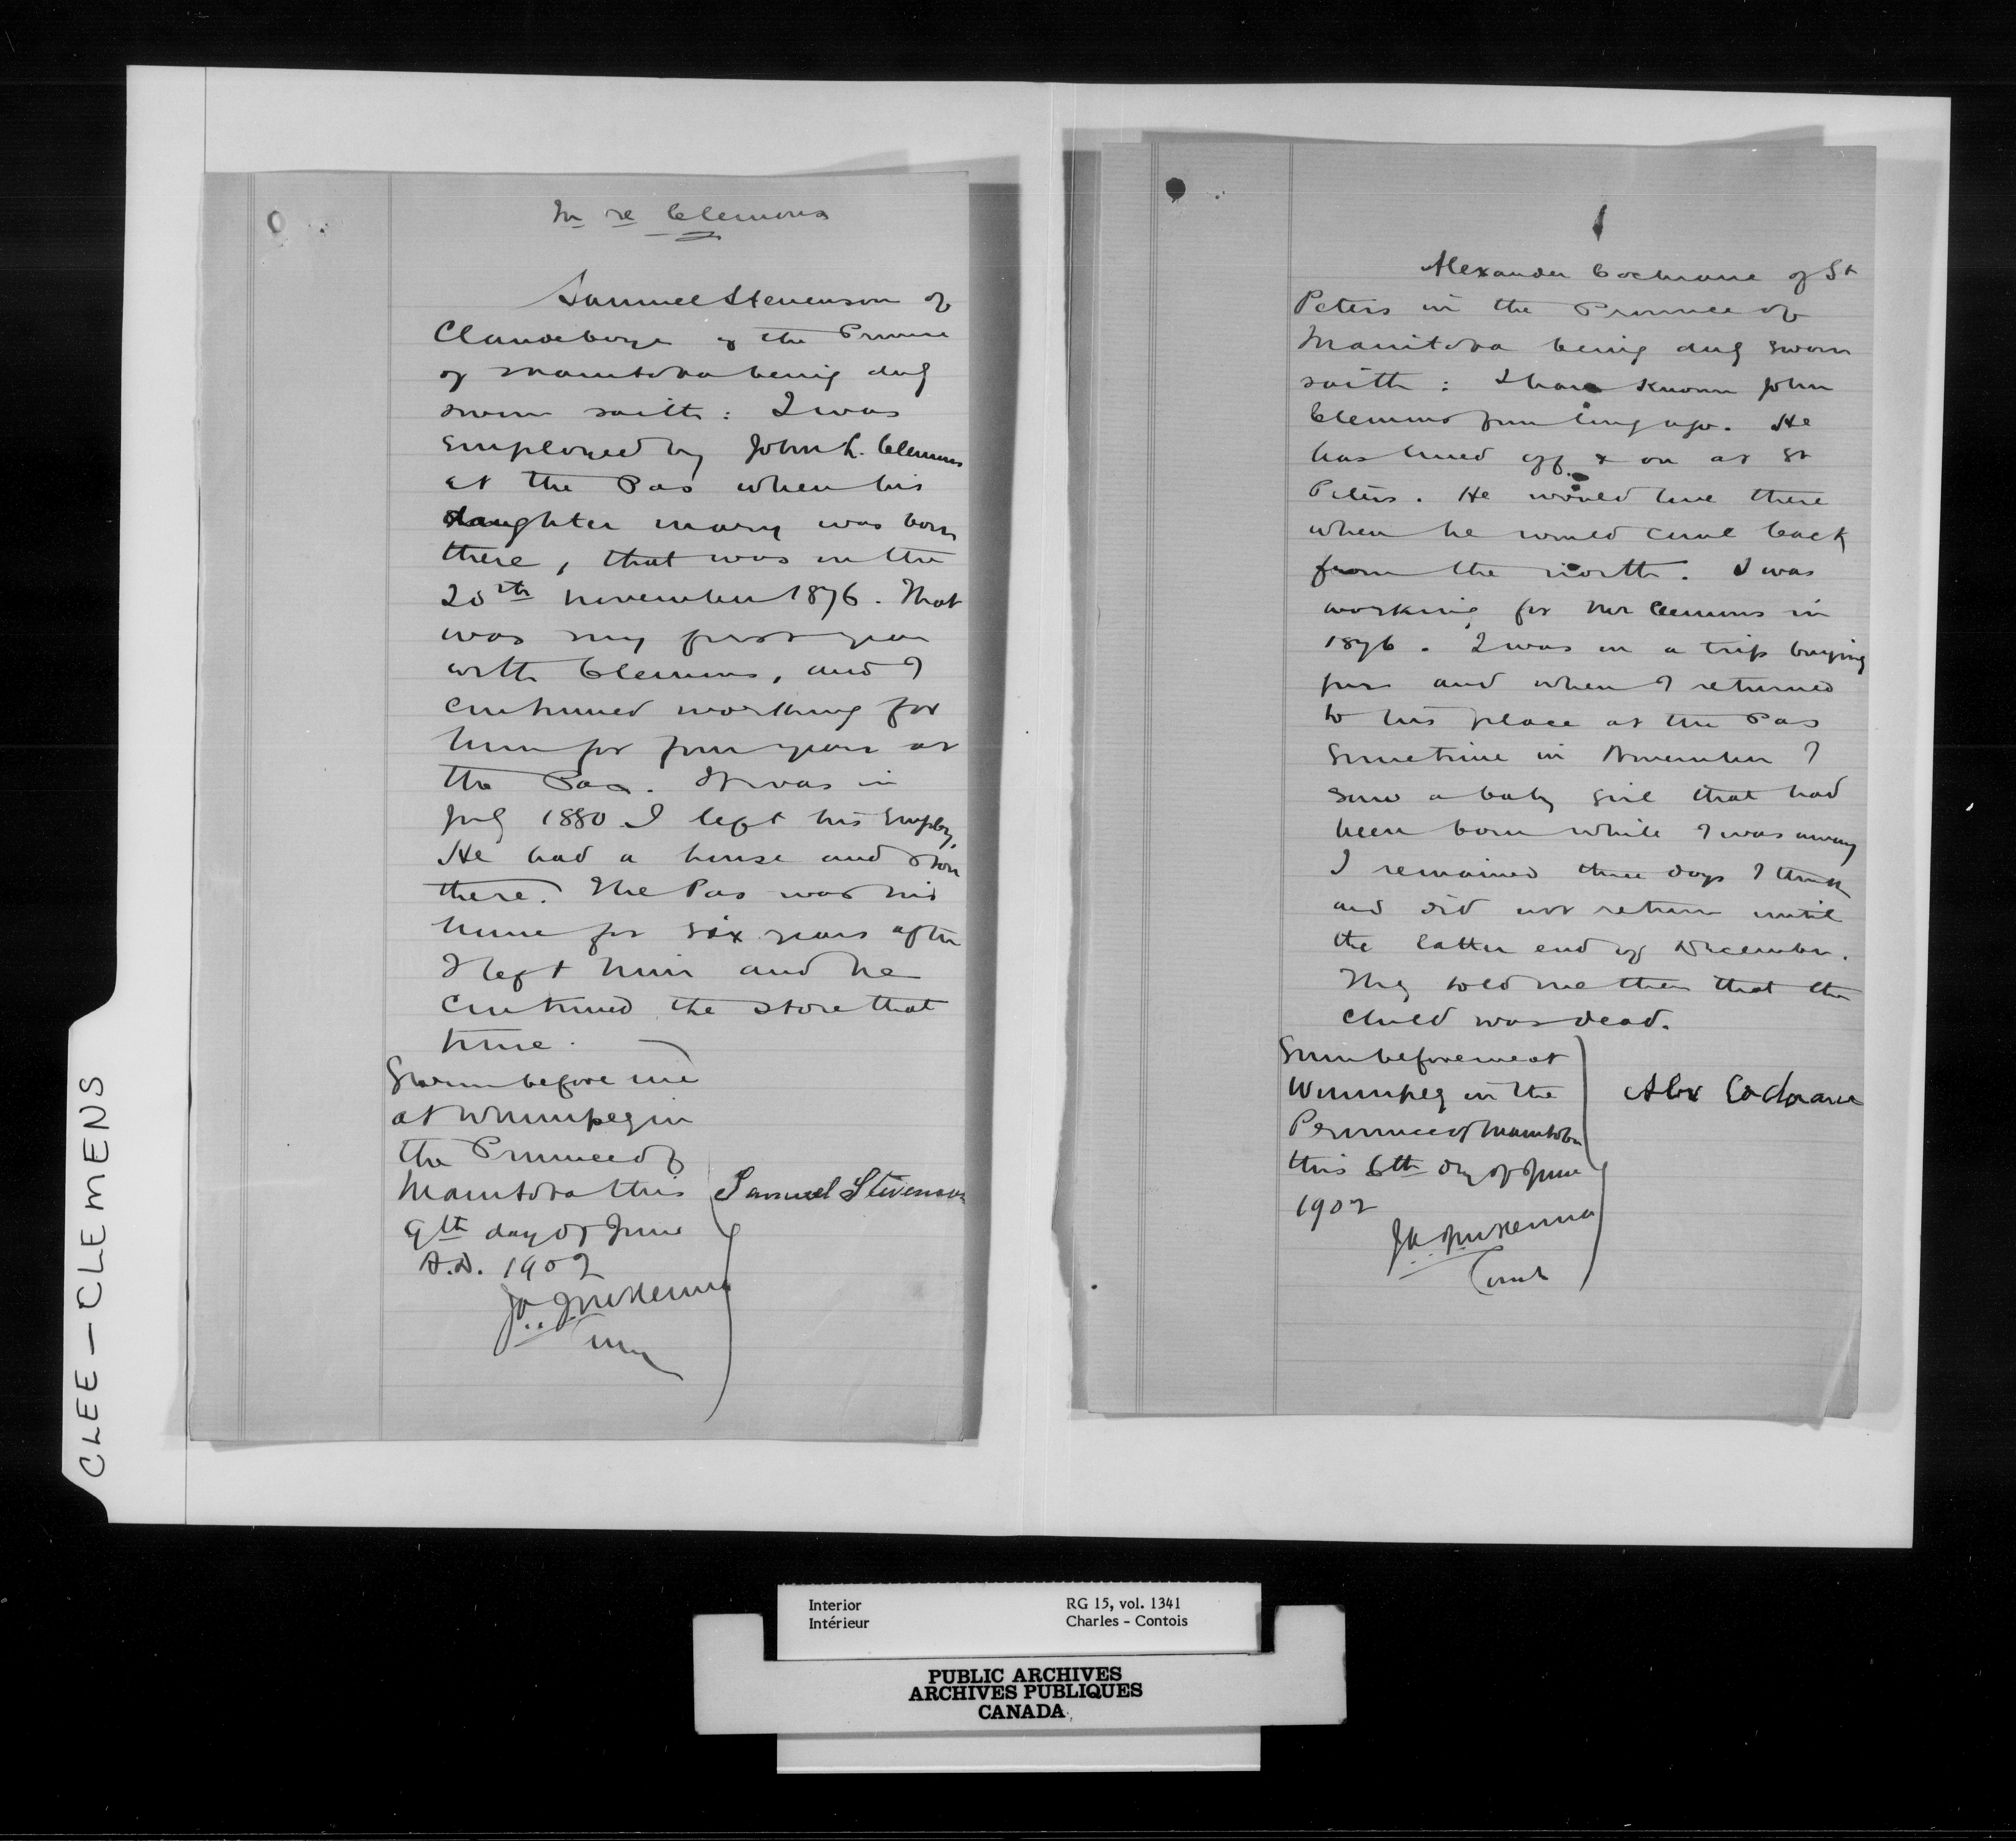 In re Clemons
Samuel Stevenson of
Clandeboye in the Province
of Manitoba being duly
sworn saith: I was
employed by John L. Clemons
at the Pas when his
daughter Mary was born
there, that was in the
20th November 1876. That
was my first year
with Clemons, and I
continued working for
him for four years at
the Pas. It was in
July 1880 I left his employ.
He had a house and store
there. The Pas was his
home for six years after
I left him and he
continued the store that
time.
Sworn before me
at Winnipeg in
the Province of
Manitoba this
9th day of June
A.D. 1902
Samuel Stevenson
J A J McKenna
Comr
Alexander Cochrane of St
Peters in the Province of
Manitoba being duly sworn
saith: I have known John
Clemons from long ago. He
has lived off & on at St
Peters. He would live there
when he would come back
from the north. I was
working for Mr Clemons in
1876. I was on a trip buying
furs and when I returned
to his place at the Pas
sometime in November I
saw a baby girl that had
been born while I was away
I remained three days I think
and did not return until
the latter end of December.
They told me then that the
child was dead.
Sworn before me at
Winnipeg in the
Province of Manitoba
this 6th day of June
1902
Alex Cochrane
J A J McKenna
Comr
CLEE-CLEMENS
Interior RG 15, vol. 1341
Intérieur Charles - Contois
PUBLIC ARCHIVES
ARCHIVES PUBLIQUES
CANADA